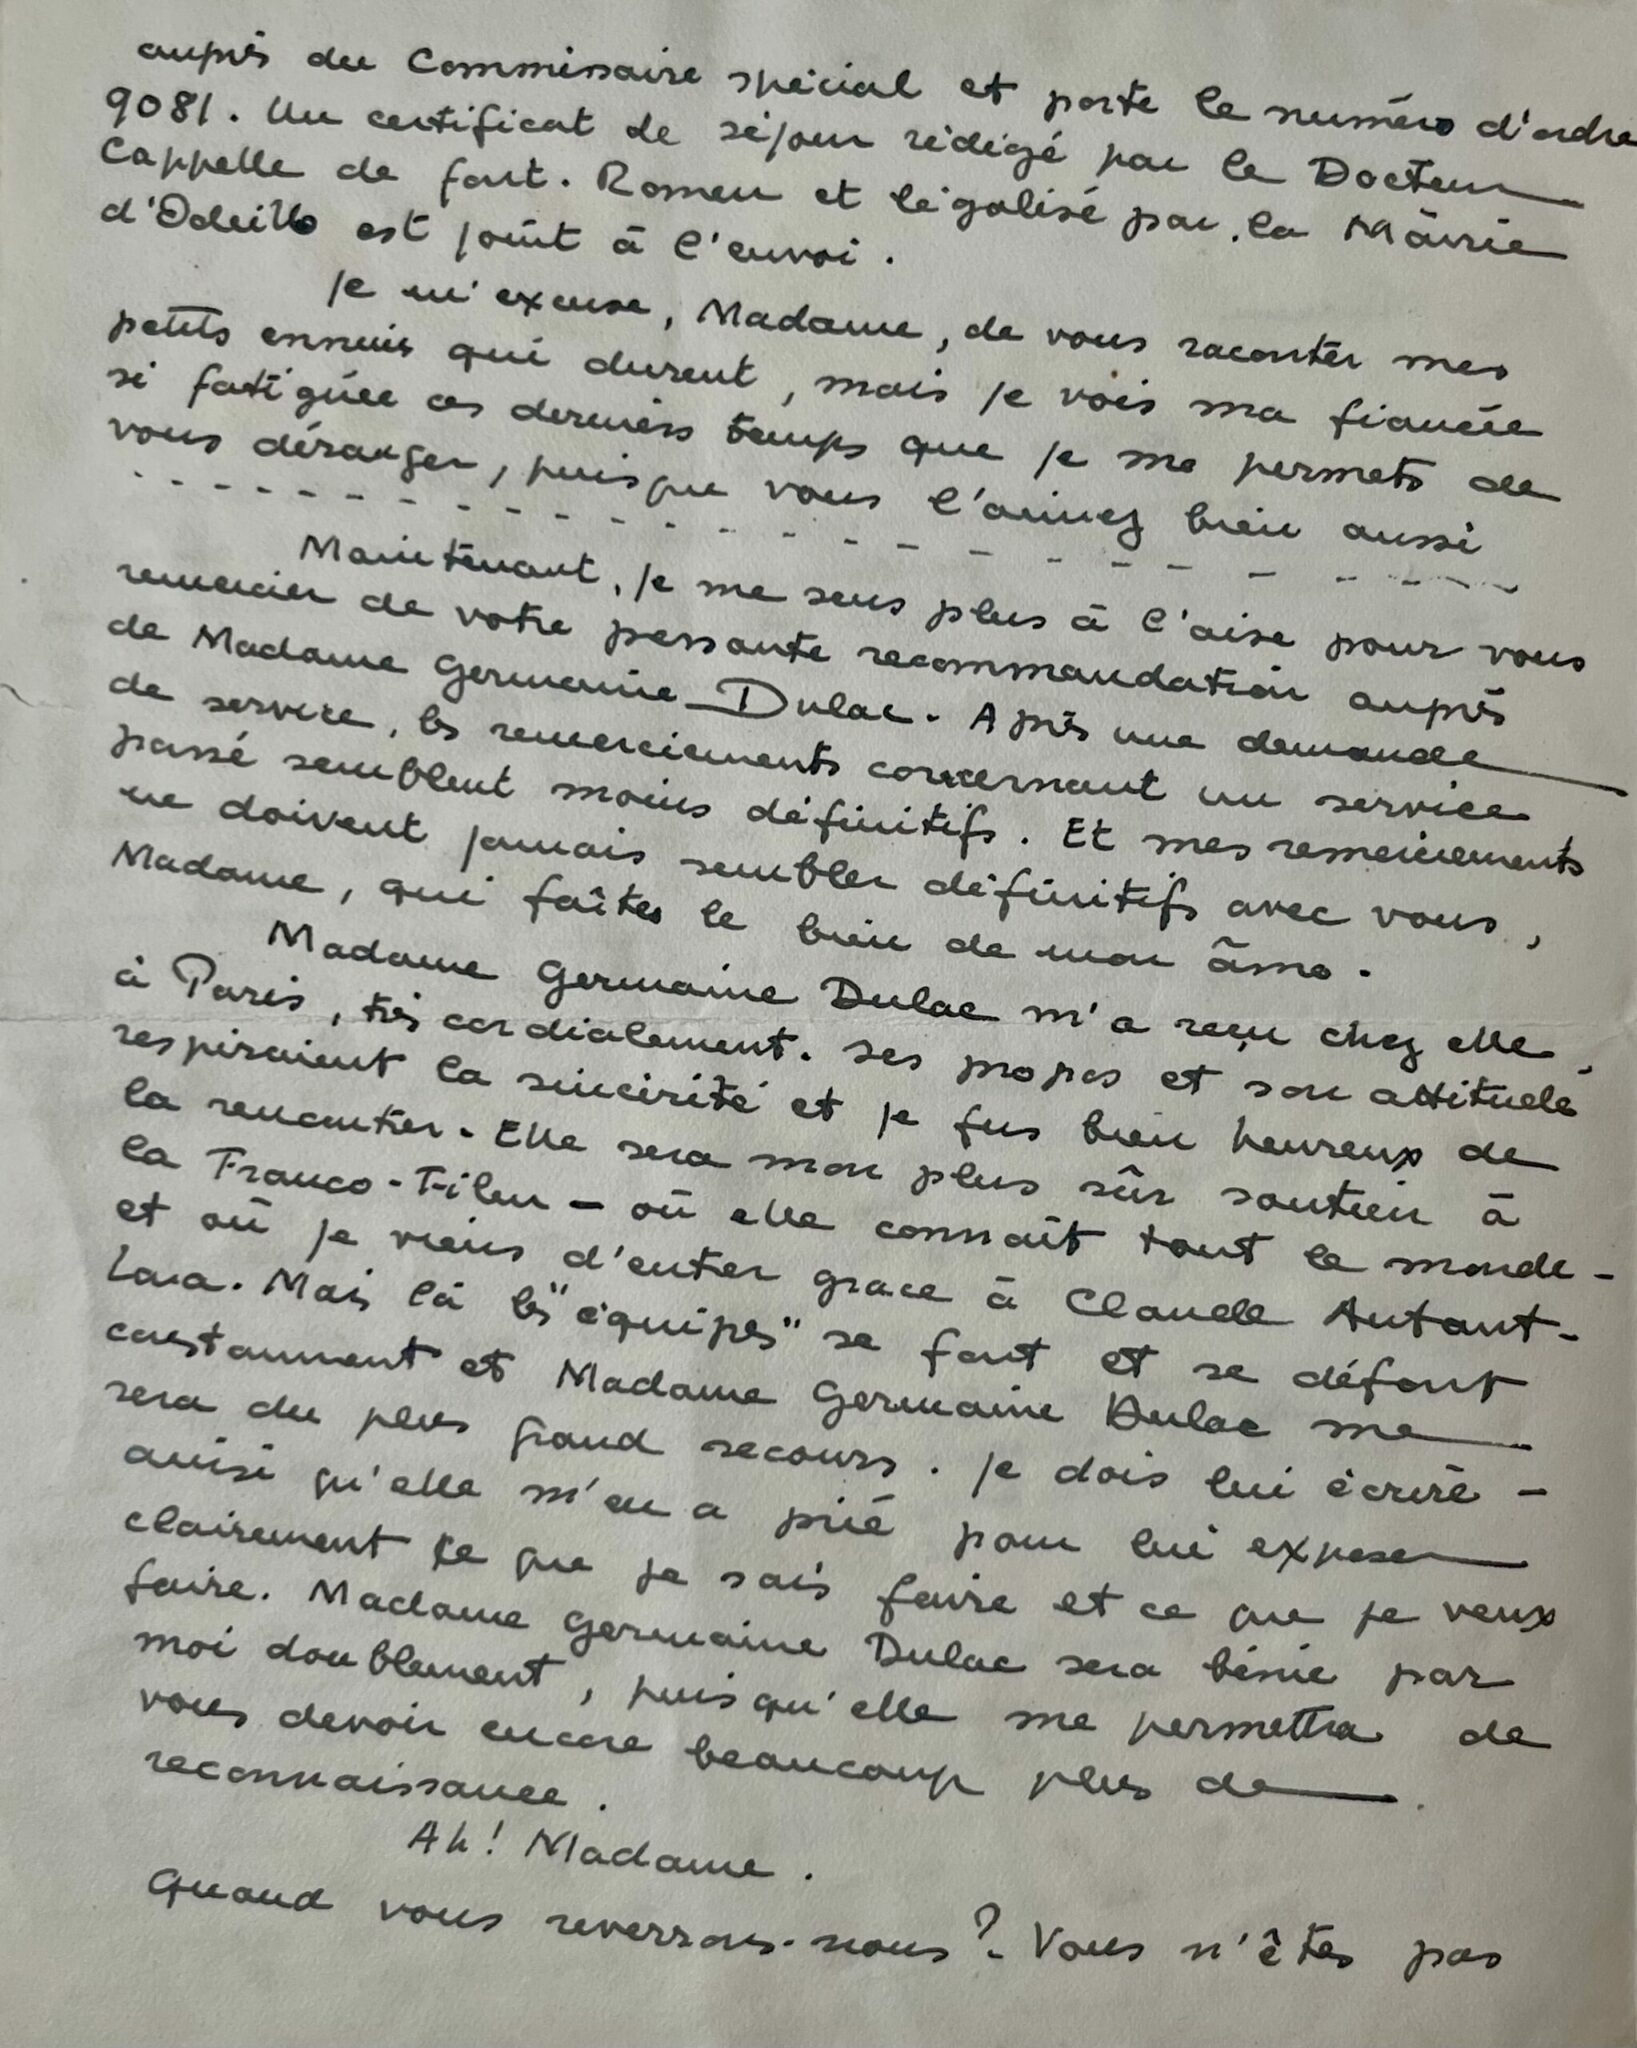 auprès du Commissaire spécial et porte le numéro d'ordre
9081. Un certificat de séjour rédigé par le Docteur
Cappelle de font. Romeu et légalisé par la Mairie
d'Odeillo est joint à l'envoi.
Je m'excuse, Madame, de vous raconter mes
petits ennuis qui durent, mais je vois ma fiancée
si fatiguée ces derniers temps que je me permets de
vous déranger, puisque vous l'aimez bien aussi
- - - - - - - - - - - - - - - - - - - - - - -
Maintenant, je me sens plus à l'aise pour vous
remercier de votre pressante recommandation auprès
de Madame Germaine Dulac. Après une demande
de service, les remerciements concernant un service
passé semblent moins définitifs. Et mes remerciements
ne doivent jamais sembler définitifs avec vous,
Madame, qui faîtes le bien de mon âme.
Madame Germaine Dulac m'a reçu chez elle,
à Paris, très cordialement. Ses propos et son attitude
respiraient la sincérité et je fus bien heureux de
la rencontrer. Elle sera mon plus sûr soutien à
la Franco-Film - où elle connaît tout le monde -
et où je viens d'entrer grace à Claude Autant-
Lara. Mais là les "équipes" se font et se défont
constamment et Madame Germaine Dulac me
sera du plus grand secours. Je dois lui écrire -
ainsi qu'elle m'en a prié pour lui exposer
clairement ce que je sais faire et ce que je veux
faire. Madame Germaine Dulac sera bénie par
moi doublement, puisqu'elle me permettra de
vous devoir encore beaucoup plus de
reconnaissance.
Ah! Madame.
Quand vous reverrons-nous? Vous n'êtes pas